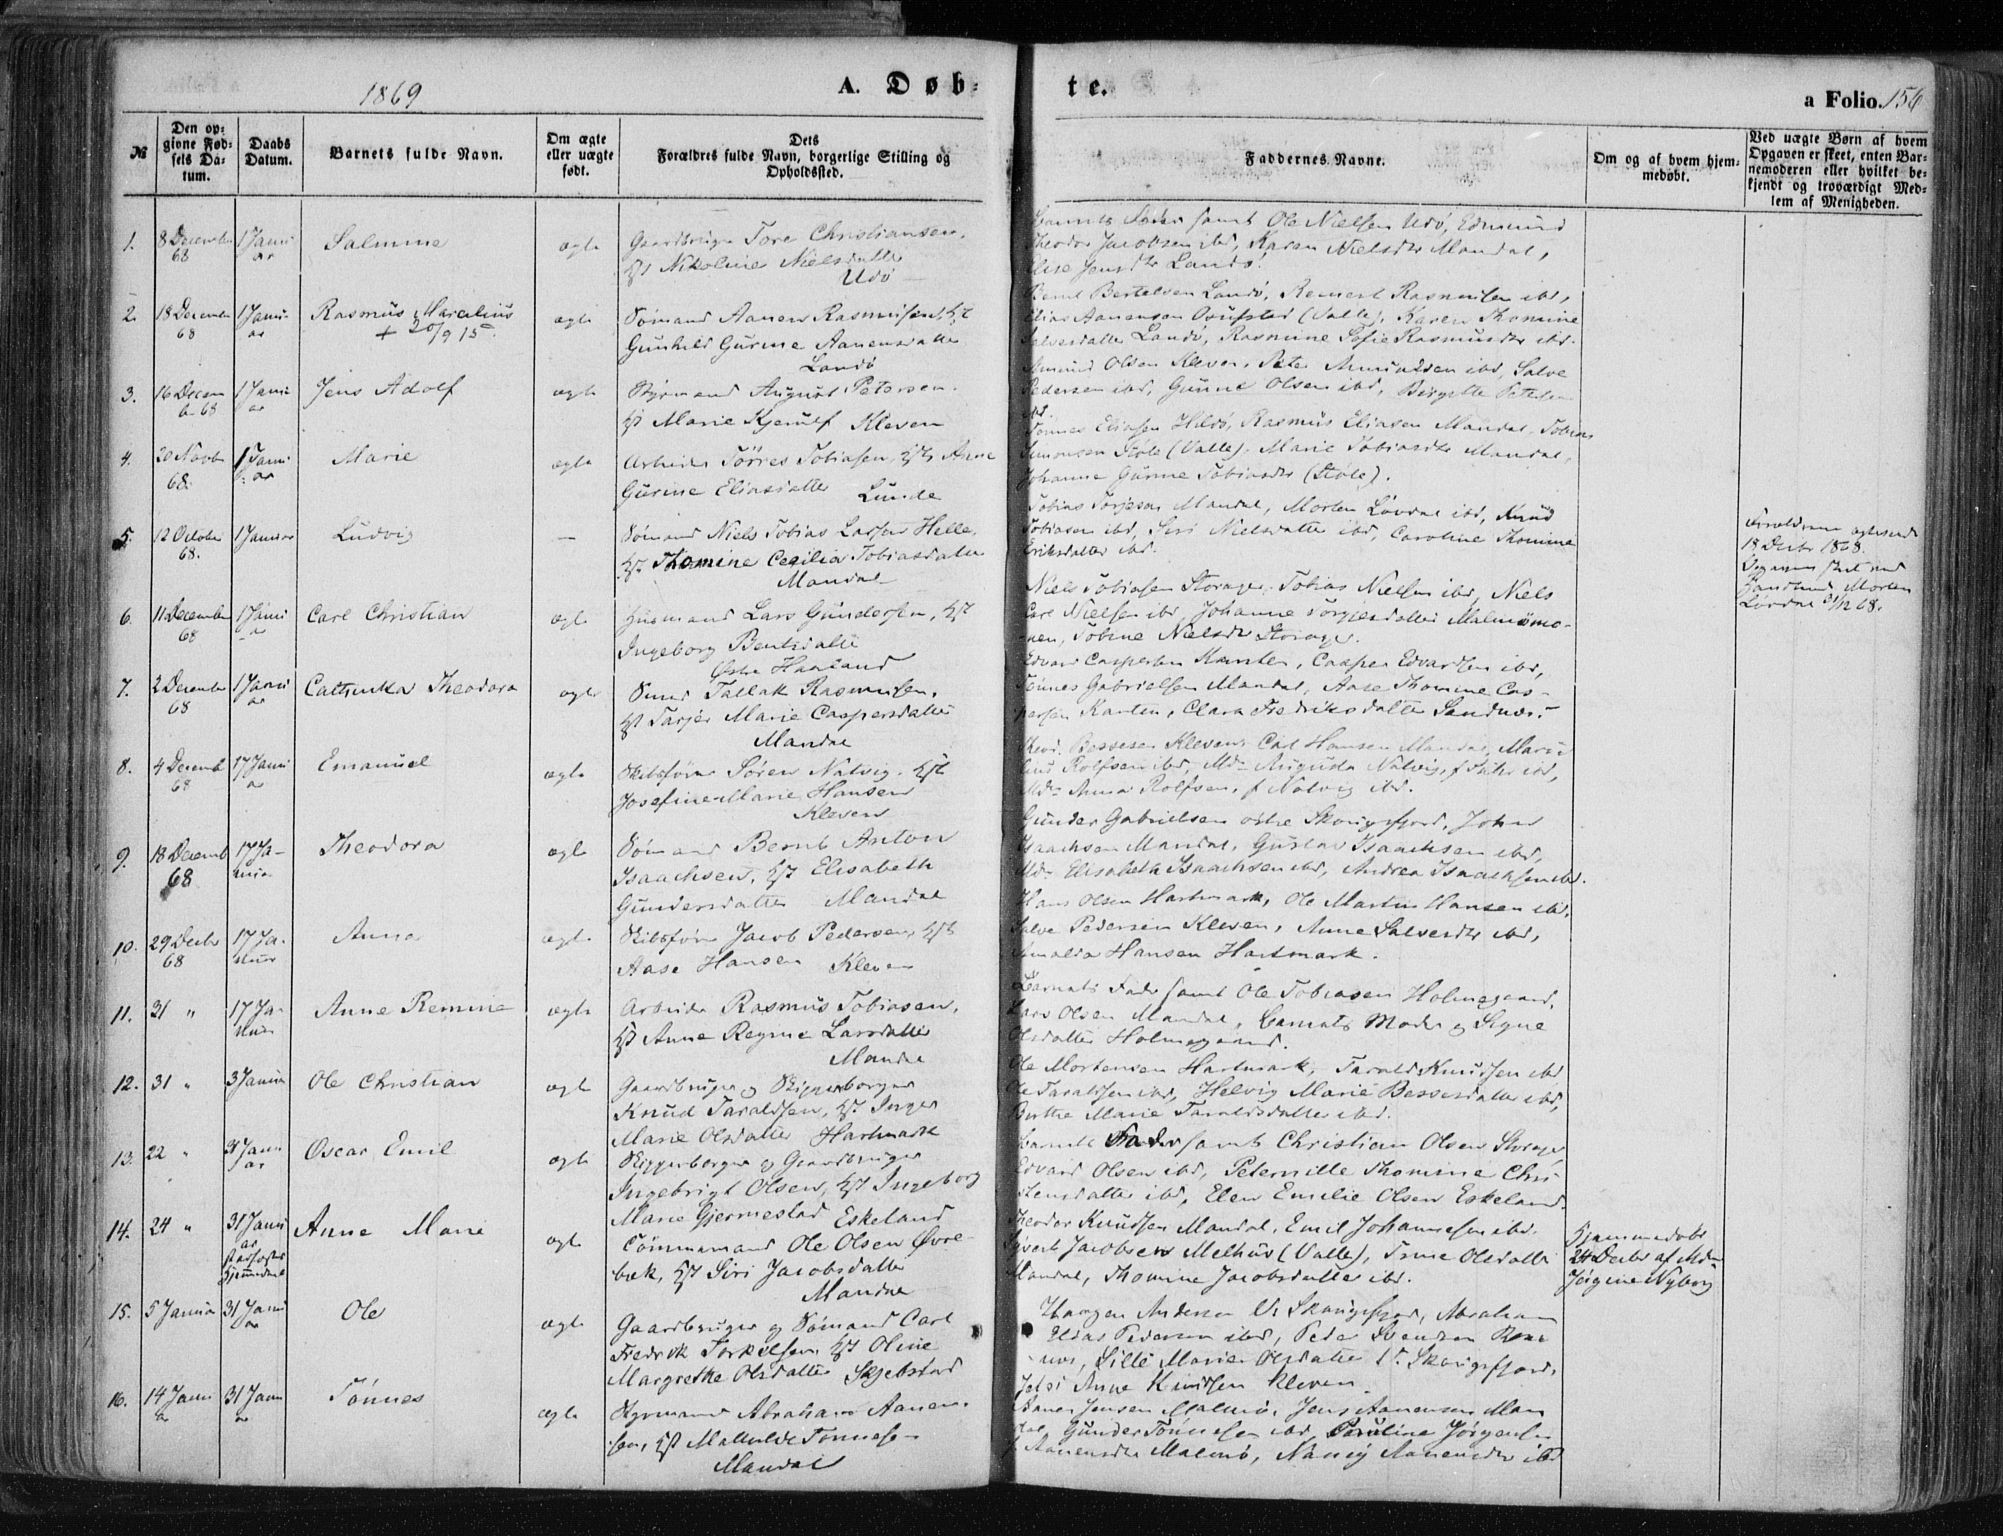 1869
A. Døb-
te.
a Folio. 156
№
Den op-
givne Fød-
sels Da-
tum.
Daabs
Datum.
Barnets fulde Navn.
Om ægte
eller uægte
født.
Dets
Forældres fulde Navn, borgerlige Stilling og
Opholdssted.
Faddernes Navne.
Om og af hvem hjem-
medøbt.
Ved uægte Børn af hvem
Opgaven er skeet, enten Bar-
nemoderen eller hvilket be-
kjendt og troværdigt Med-
lem af Menigheden.
1. 8 December 68 1 Januar Salmine ægte Gaardbruger Tore Christiansen,
Nikoline Nielsdatter
Udø
Barnets Fader samt Ole Nielsen Udø, Edmund
Theodor Jacobsen ibd, Karen Nielsdtr Mandal,
Elise Jensdtr Landø.
2. 18 December 68 1 Januar Rasmus Marcelius ægte Sømand Aanen Rasmussen, Hst
+ 20/9 15.
Gunhild Gurine Aanensdatter
Landø
Bernt Bertelsen Landø, Reinert Rasmussen ibd,
Elias Aanensen Osufstad (Valle), Karen Thomine
Salvesdatter Landø, Rasmine Sofie Rasmusdtr ibd.
3. 16 Decem 68 1 Januar Jens Adolf ægte Styrmand August Petersen,
Marie Kjerulf Kleven
Amund Olsen Kleven, Peter Amundsen ibd, Salve
Pedersen ibd, Gunne Olsen ibd, Birgitte Petersen
ibd.
4. 20 Novbr 68. 1 Januar Marie ægte Arbeider Törres Tobiasen, Hst Anne
Gurine Eliasdatter Lunde
Tönnes Eliasen Hildø, Rasmus Eliasen Mandal, Tobias
Simonsen Støle (Valle), Marie Tobiasdtr Mandal,
Johanne Gurine Tobiasdtr (Støle).
5. 12 October 68. 1 Januar Ludvig — Sømand Niels Tobias Larsen Helle,
Hst Thomine Cecilia Tobiasdatter
Mandal
Tobias Torjesen Mandal, Morten Lövdal ibd, Knud
Tobiasen ibd, Siri Nielsdatter ibd, Caroline Thomine
Eriksdatter ibd.
Forældrene ægteviede
18 Decbr 1868.
Morten
Lövdal 31/12 68.
6. 11 December 68 1 Januar Carl Christian ægte Huusmand Lars Gundersen, Hst
Ingeborg Bentsdatter
Østre Haaland
Niels Tobiasen Storager, Tobias Nielsen ibd, Niels
Carl Nielsen ibd, Johanne Torgiersdatter Malmømo-
nen, Tobine Nielsdtr Storager.
7. 2 December 68 1 Januar Cathinka Theodora ægte Smed Tallak Rasmussen,
Hst Tarjer Marie Caspersdatter
Mandal
Edvard Caspersen Karsten, Casper Edvardsen ibd,
Tönnes Gabrielsen Mandal, Aase Thomine Cas-
persen Karsten, Clara Fredriksdatter Sandnæs.
8. 4 Decemb 68 17 Januar Emanuel ægte Skibsfører Sören Natvig, Hst
Josefine Marie Hansen
Kleven
Bessesen Kleven, Carl Hansen Mandal, Mari
lius Rolfsen ibd, Md Augusta Natvig, ibd,
Md Anna Rolfsen, f Natvig ibd.
9. 18 Decemb 68 17 Ja-
nuar Theodora ægte Sømand Bernt Anton
Isaachsen, Hst Elisabeth
Gundersdatter Mandal
Gunder Gabrielsen østre Skougsfjord, John
Isaachsen Mandal, Gustav Isaachsen ibd,
Md Elisabeth Isaachsen ibd, Andrea Isaachsen ibd.
10. 29 Decbr 68 17 Ja-
nuar Anna ægte Skibsfører Jacob Pedersen, Hst
Aase Hansen Kleven
Hans Olsen Hartmark, Ole Martin Hansen ibd,
Salve Pedersen Kleven, Anne Salvesdtr ibd,
Amalia Hansen Hartmark.
11. 31 " 17 Ja-
nuar Anne Remine ægte Arbeider Rasmus Tobiasen,
Hst Anne Regine Larsdatter
Mandal
Barnets Fader samt Ole Tobiasen Holmegaard,
Lars Olsen Mandal, Barnets Moder og Signe
Olsdatter Holmegaard.
12. 31 " 3 Januar Ole Christian ægte Gaardbruger og Skipperborger
Knud Taraldsen, Hst Inger
Marie Olsdatter Hartmark
Ole Mortensen Hartmark, Tarald Knudsen ibd
Ole Taraldsen ibd, Helvig Marie Bessesdatter ibd,
Berthe Marie Taraldsdatter ibd.
13. 22 " 31 Janu
ar Oscar Emil ægte Skipperborger og Gaardbruger
Ingebrigt Olsen, Hst Ingeborg
Marie Gjermestad Eskeland
Barnets Fader samt Christian Olsen Storager
Edvard Olsen ibd, Peternille Thomine Chri-
stensdatter ibd, Elen Emilie Olsen Eskeland.
14. 24 " 31 Janu
ar
stadfæstet
Hjemmedaab Anne Marie ægte Tømmermand Ole Olsen Øvre-
bæk, Hst Siri Jacobsdatter
Mandal
Theodor Knudsen Mandal, Emil Johannesen ibd.
Sivert Jacobsen Melhus (Valle), Trine Olsdatter
Mandal, Thomine Jacobsdatter ibd.
Hjemmedøbt
24 Decbr af Md
Jörgine Nyborg
15. 5 Januar 31 Janu
ar Ole ægte Gaardbruger og Sømand Carl
Fredrik Torkelsen, Hst Oline
Margrethe Olsdatter Skjebstad
Andersen V. Skougsfjord, Abraham
Elias Pedersen ibd, Peder Svendsen
Sille Marie Olsdatter V. Skougsfjord,
Anne Knudsen Kleven.
16. 14 Janu
ar 31 Janu
ar Tønnes ægte Styrmand Abraham Aanen-
sen, Hst Mathilde Tönnese-
Mandal
Aanen Jensen Malmø, Jens Aanensen Man
dal, Gunder Tönnesen ibd, Pauline Jørgensen
f Aanensdtr Malmø, Nancy Aanensdtr ibd